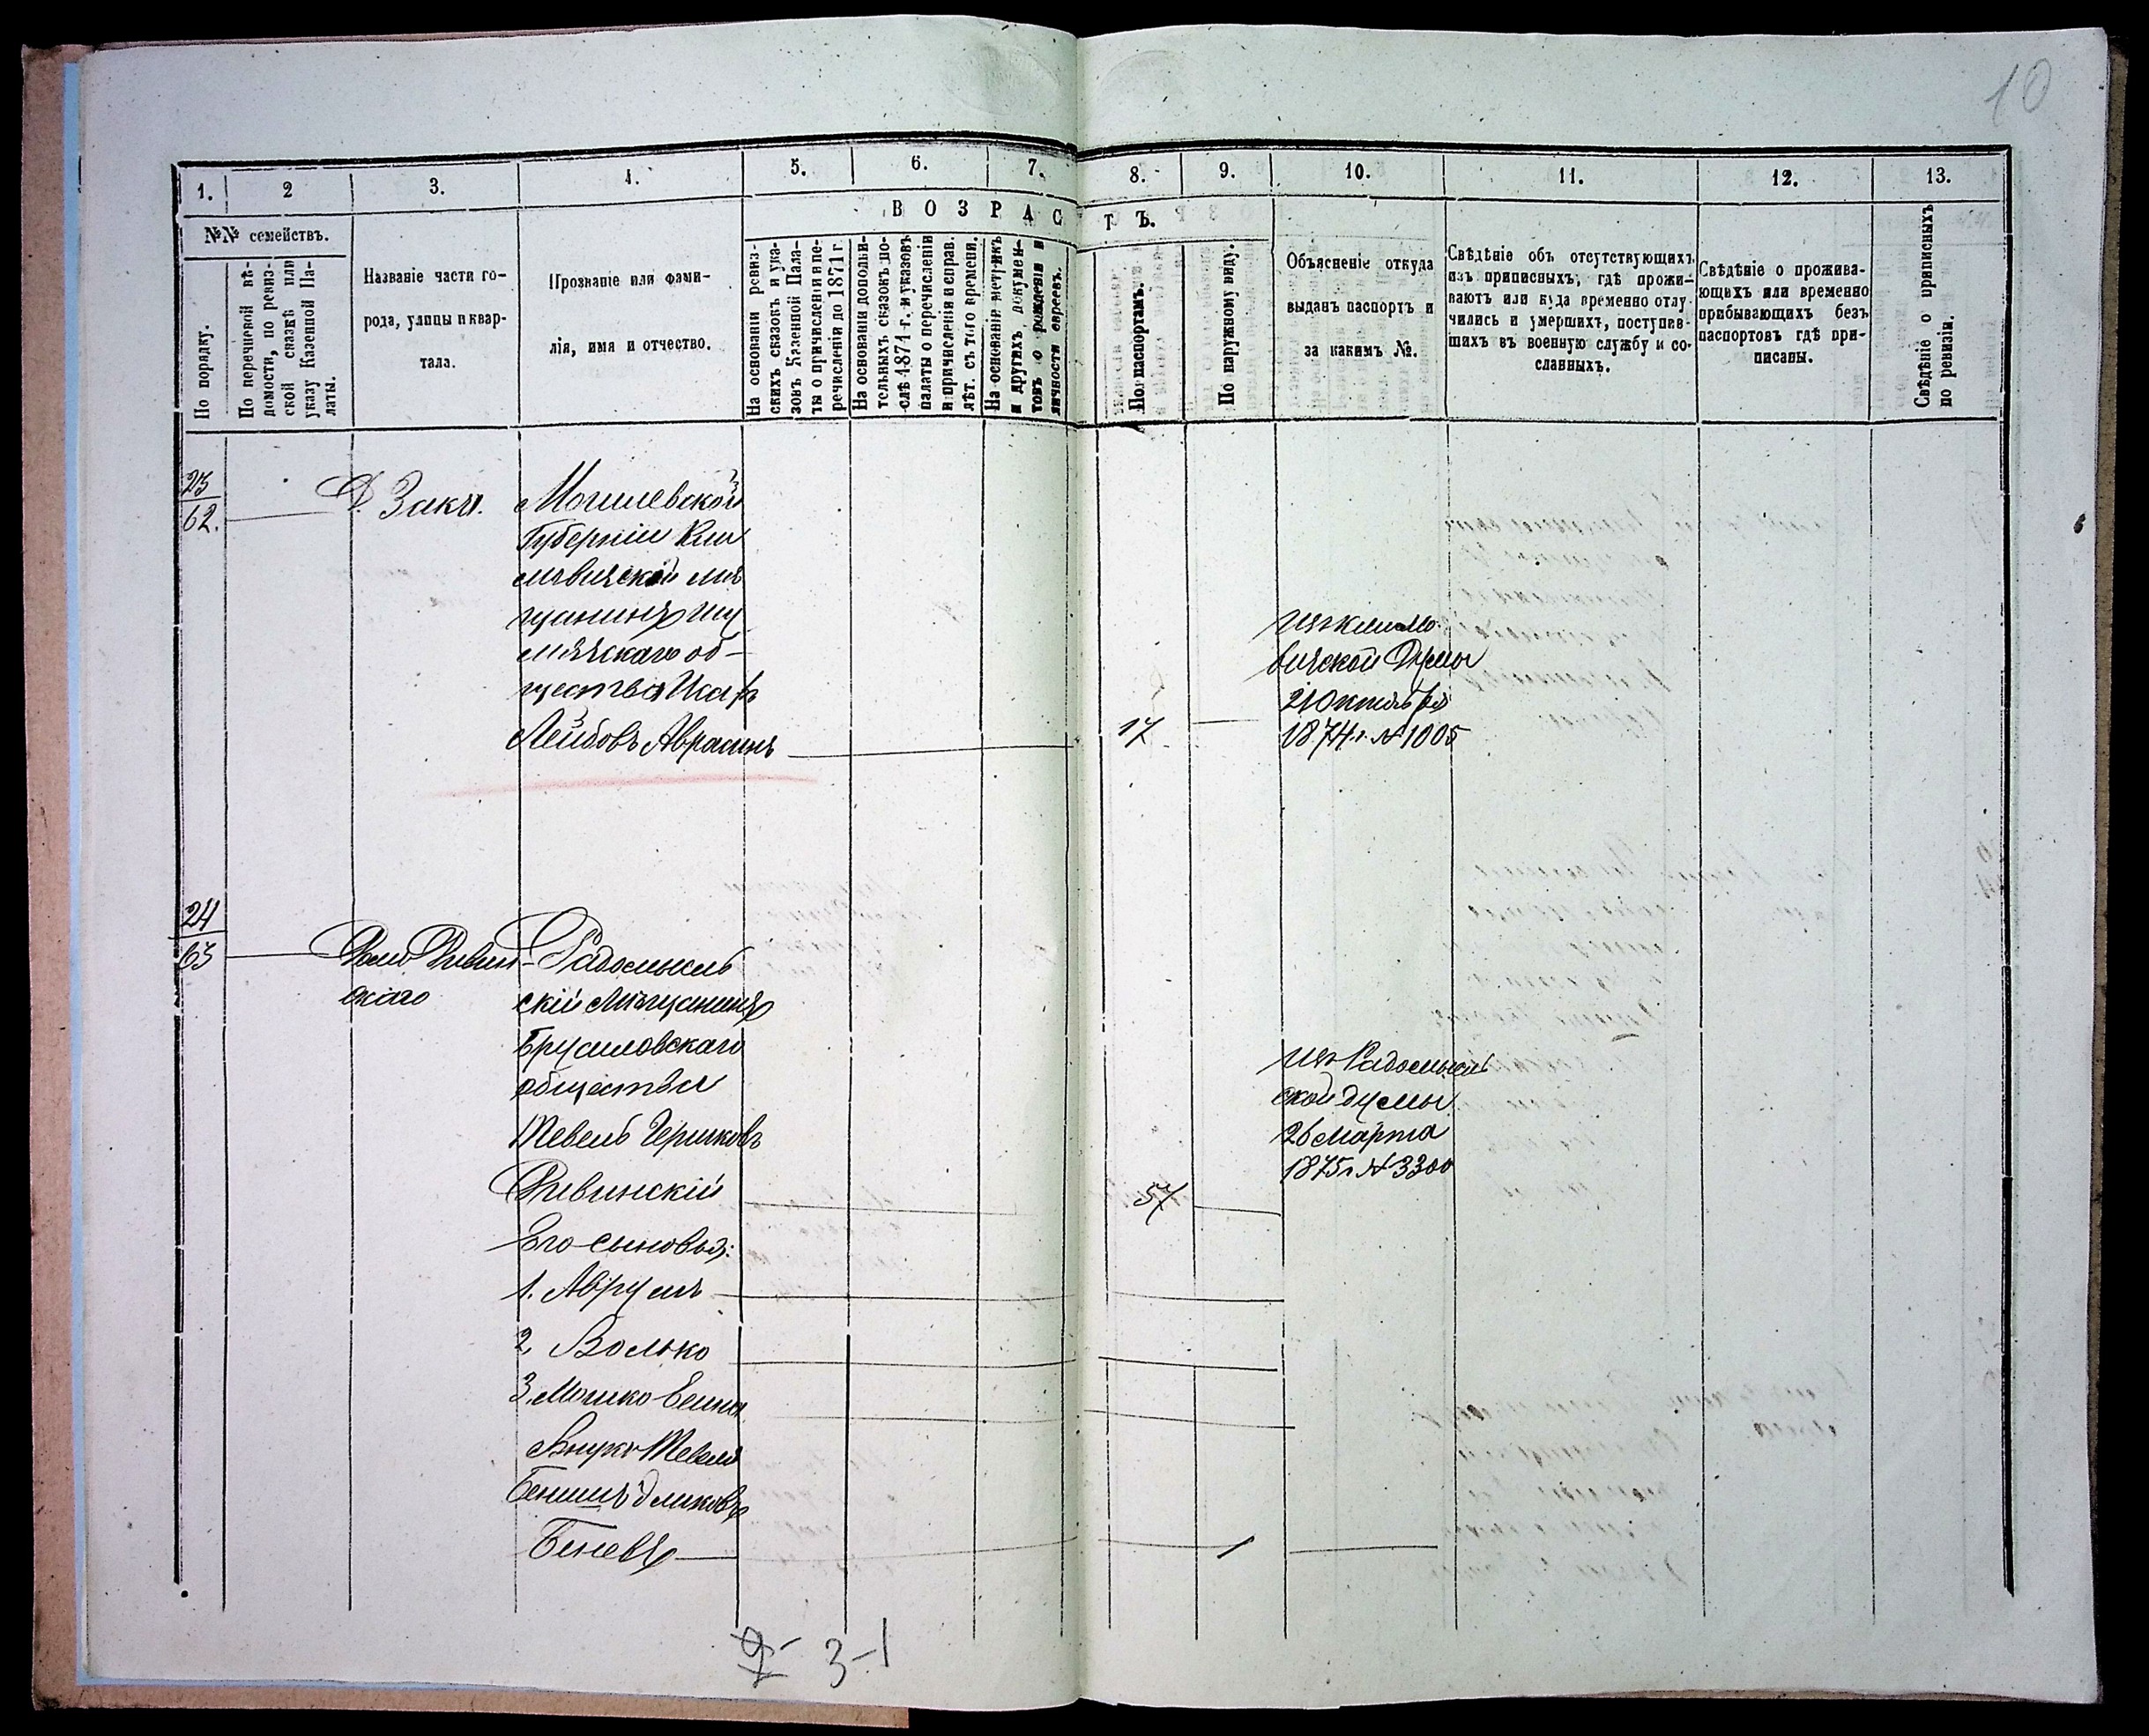 10
1. 2 3. 4. 5. 6. 7. 8. 9. 10. 11. 12. 13.
№№ семействъ.
По порядку.
По перечневой вѣ-
домости, по ревиз-
ской сказкѣ или
указу Казенной Па-
латы.
Названіе части го-
рода, улицы и квар-
тала.
Прозваніе или фами-
лія, имя и отчество.
ВОЗРАСТЪ.
На основаніи ревиз-
скихъ сказокъ и ука-
зовъ Казенной Пала-
ты о причисленіи и пе-
речисленіи до 1871 г.
На основаніи дополни-
тельныхъ сказокъ по-
слѣ 1871 г. и указовъ
палаты о перечисленіи
и причисленіи и справ.
лѣт. съ того времени.
На основаніи метрикъ
и другихъ докумен-
товъ о рожденіи и
личности евреевъ.
По паспортамъ.
По наружному виду.
Объясненіе откуда
выданъ паспортъ и
за какимъ №.
Свѣдѣніе объ отсутствующихъ
изъ приписныхъ, гдѣ прожи-
ваютъ или куда временно отлу-
чились и умершихъ, поступив-
шихъ въ военную службу и со-
сланныхъ.
Свѣдѣніе о прожива-
ющихъ или временно
прибывающихъ безъ
паспортовъ гдѣ при-
писаны.
Свѣдѣніе о приписныхъ
по ревизіи.
23
62.
Д. Закч.
Могилевской
Губерніи Кли
мовичской мѣ
щанинъ Шу
мячскаго об-
щества Исаръ
Лейбовъ Аврасинъ
17
Изъ Климо-
вичской Думы
21 Октября
1874 г. № 1005
24
63
Дом Ривин-
скаго
Радомысль
скій Мѣщанинъ
Брусиловскаго
общества
Тевель Гершковъ
Ривинскій
57
Изъ Радомысль
ской думы
26 Марта
1875 г № 3300
Его сыновья:
1. Аврумъ
2, Волько
3. Мошко-Беина
Внукъ Тевеля
Бенишъ
Беневъ
1
3-1